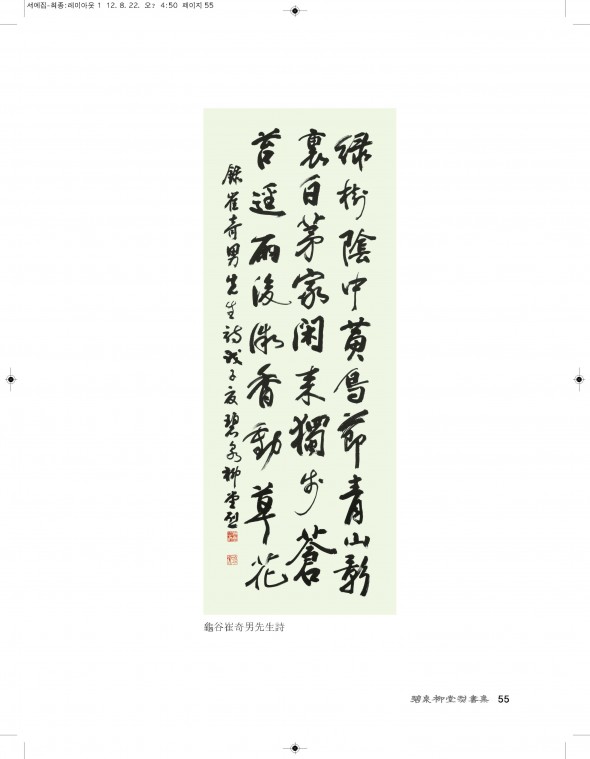 서예집-최종:레이아웃 1 12. 8. 22. 오? 4:50 페이지 55
綠樹陰中黃鳥節靑山影
裏白茅家閑來獨步蒼
苔逕雨後微香動草花
錄崔奇男先生詩戊子夏碧泉柳堂烈
龜谷崔奇男先生詩
碧泉柳堂烈書集 55